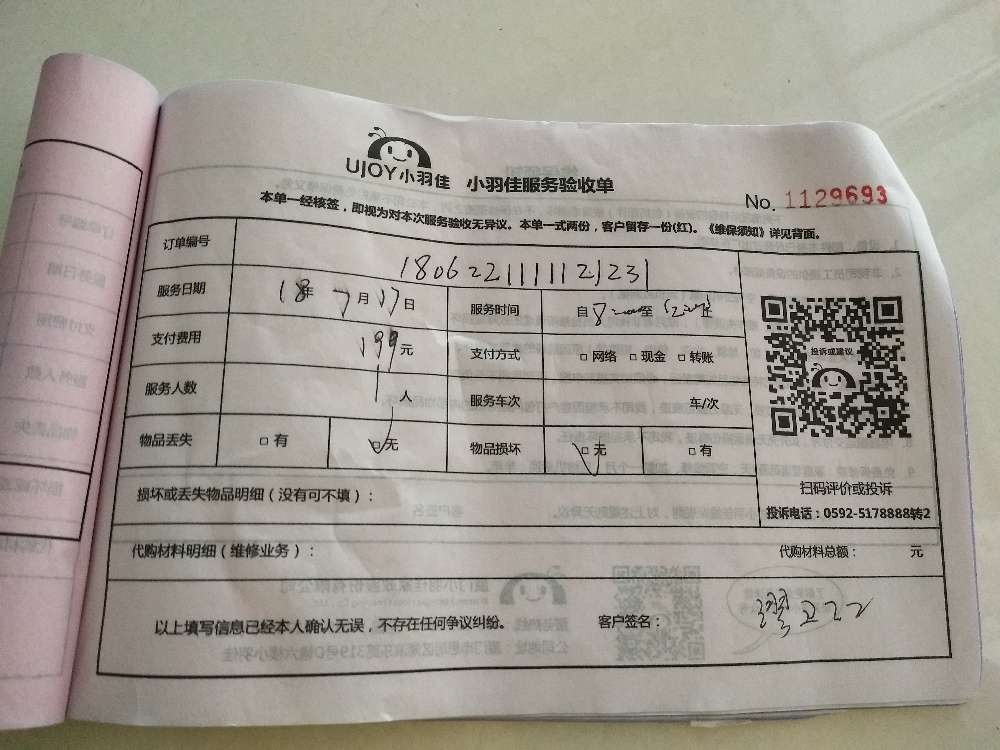 UJOY小羽佳 小羽佳服务验收单
No. 1129693
本单一经核签，即视为对本次服务验收无异议。本单一式两份，客户留存一份(红)。《维保须知》详见背面。
订单编号 180622111112231
服务日期 18年 7月17日 服务时间 自8:00至12:00止
支付费用 199元 支付方式 □网络 □现金 □转账
服务人数 1人 服务车次 车/次
物品丢失 □有 □无 物品损坏 □无 □有
投诉或建议
扫码评价或投诉
投诉电话：0592-5178888转2
损坏或丢失物品明细（没有可不填）：
代购材料明细（维修业务）： 代购材料总额： 元
以上填写信息已经本人确认无误，不存在任何争议纠纷。 客户签名：